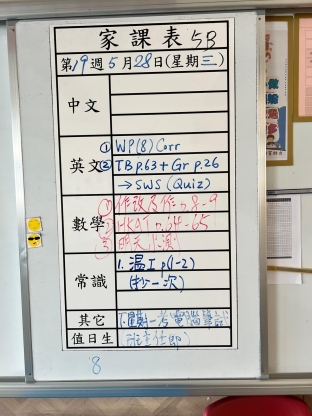 家課表 5B
第19週5月28日(星期三)
中文
英文
① WP(8) Corr
② TB p.63 + Gr p.26
→ SWS (Quiz)
數學
① 作改及作 p.8-9
p.64-65
③ 明天小測
常識
1. 溫 I p(1-2)
(抄一次)
其它
下星期一考電腦筆試
值日生
8